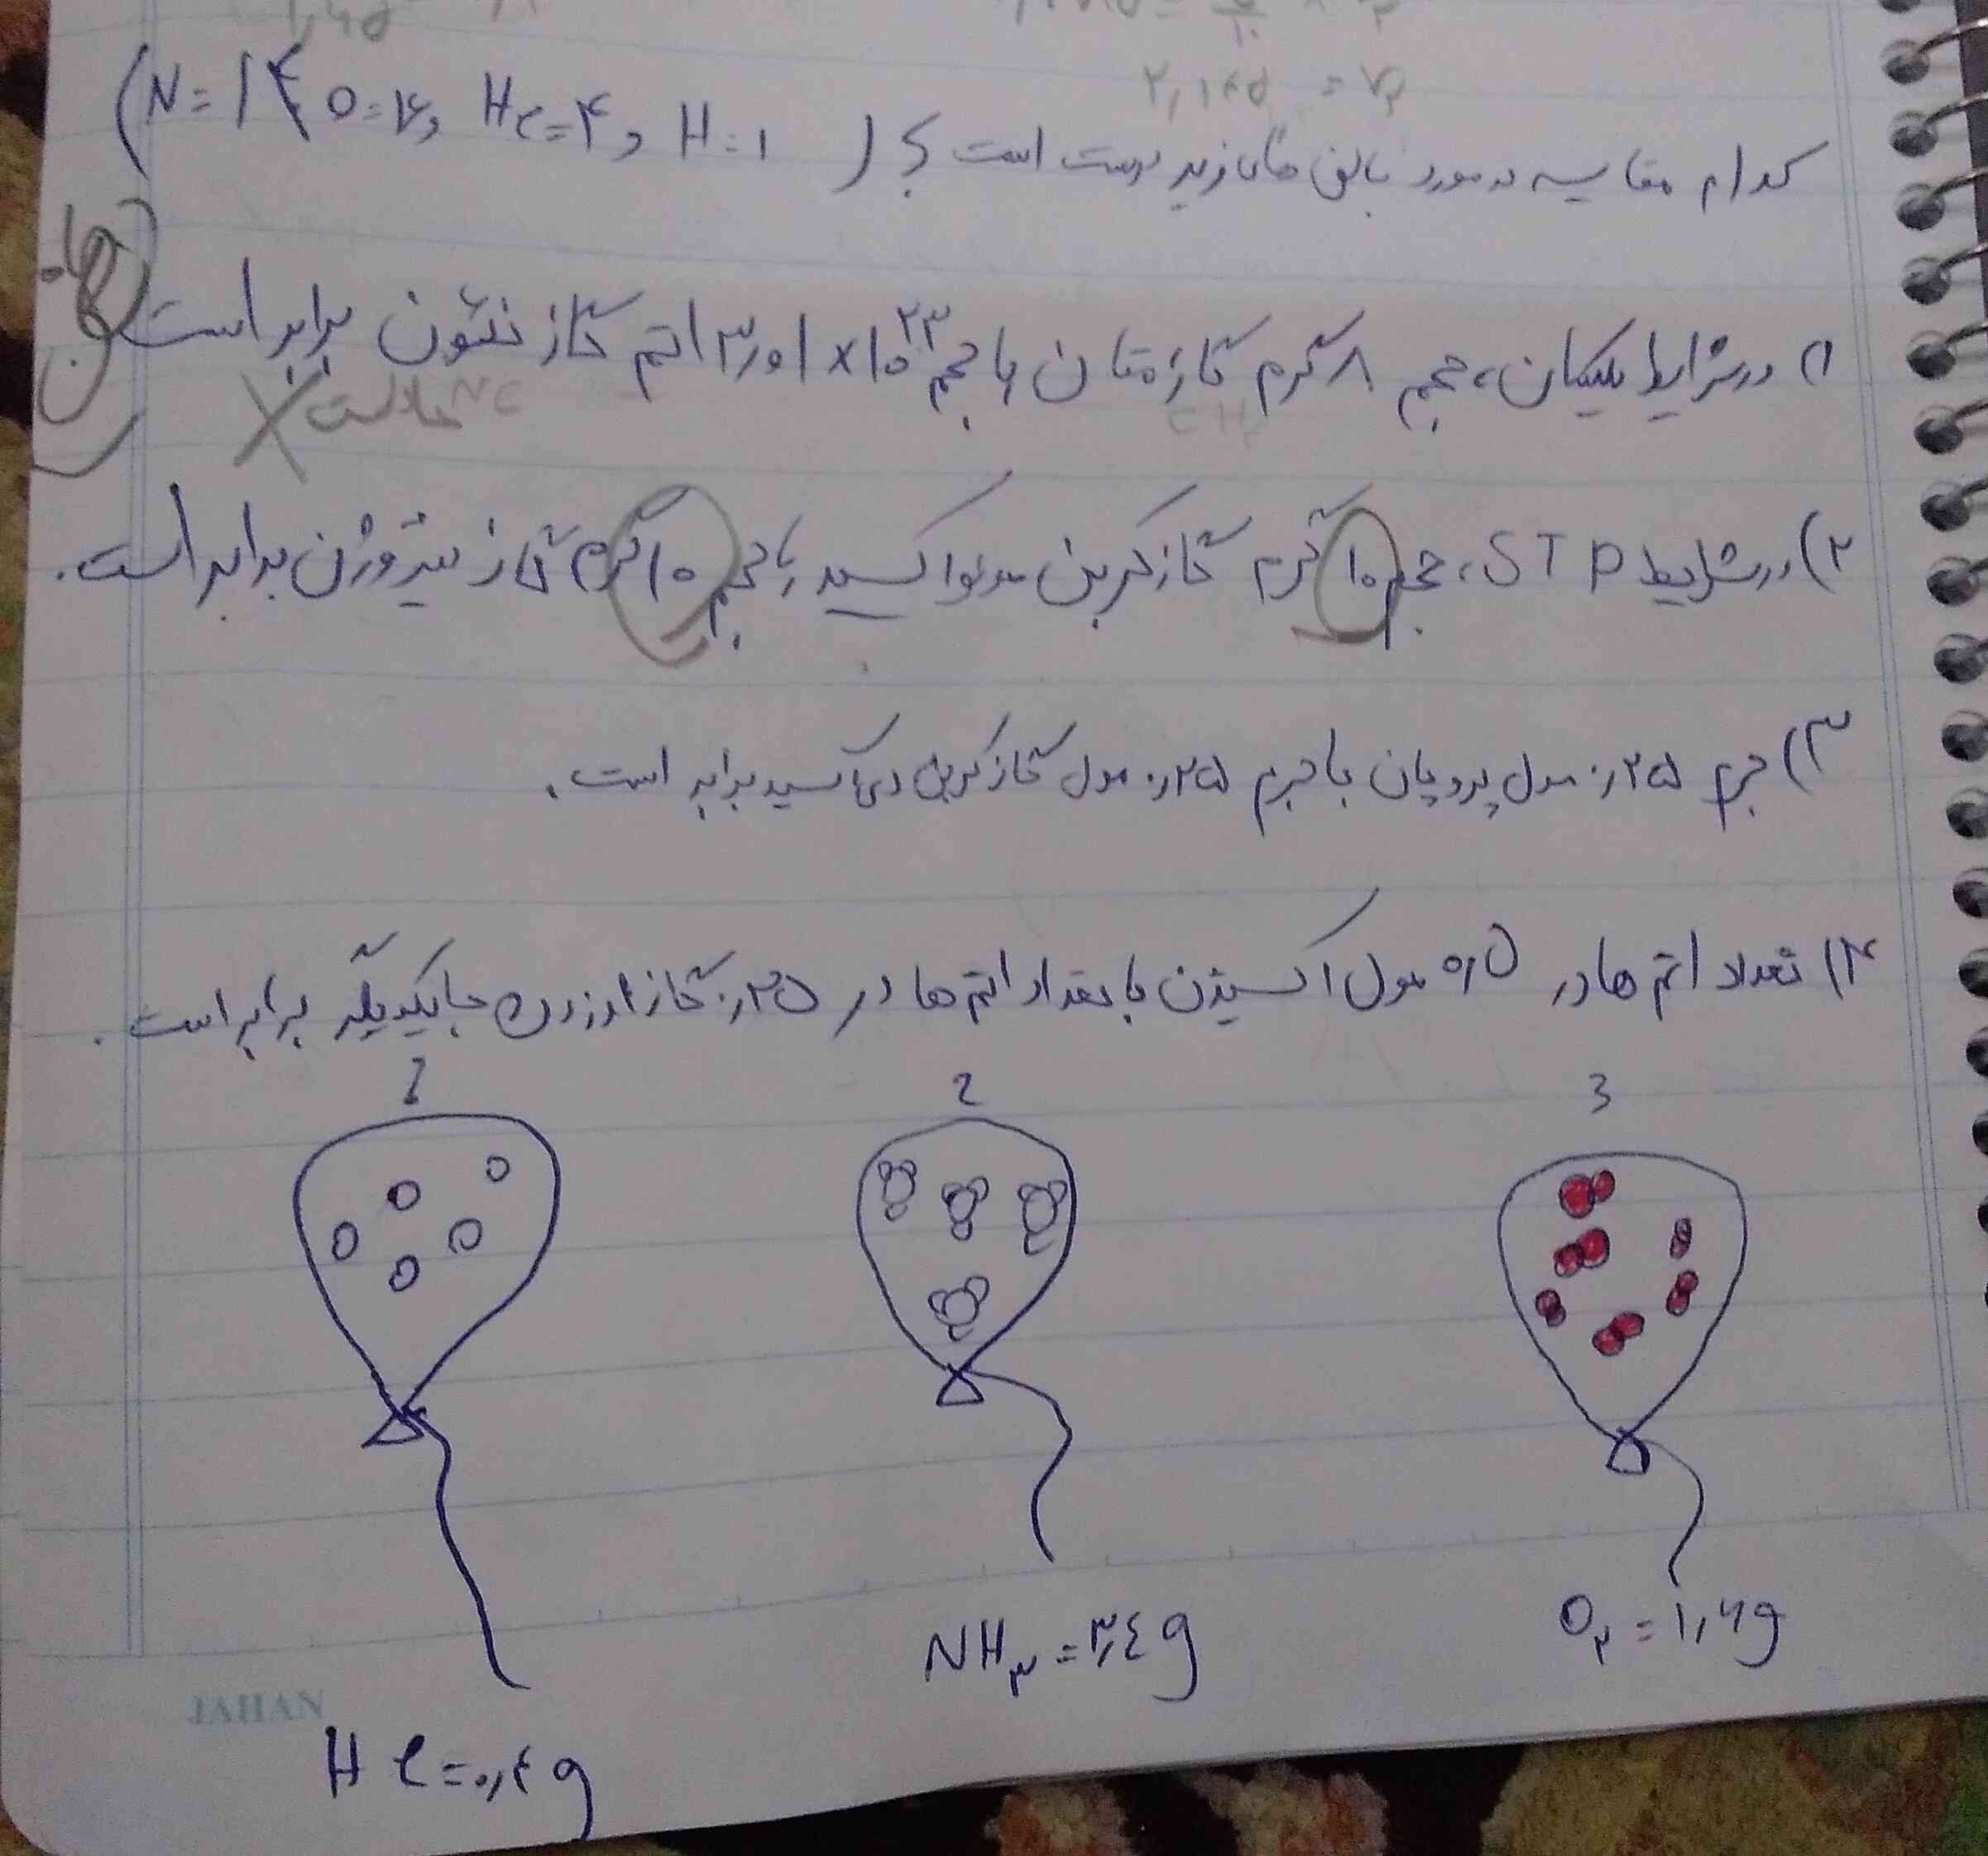 ۲٫۱۲۵ = V۲
کدام مقایسه در مورد بالن های زیر درست است ؟ ( H=۱ و He=۴ و O=۱۶ و N=۱۴ )
۱) در شرایط یکسان، حجم ۸ گرم گاز متان با حجم ۳٫۰۱×۱۰^۲۳ اتم گاز نئون برابر است
CH۴ Ne
۲) در شرایط STP، حجم ۱۰ گرم گاز کربن مونواکسید با حجم ۱۰ گرم گاز نیتروژن برابر است.
۳) جرم ۰٫۲۵ مول پروپان با جرم ۰٫۲۵ مول گاز کربن دی اکسید برابر است.
۴) تعداد اتم ها در ۰٫۵ مول اکسیژن با تعداد اتم ها در ۰٫۲۵ گاز اوزون با یکدیگر برابر است.
1 2 3
He=۰٫۴g NH۳=۳٫۴g O۲=۱٫۶g
JAHAN